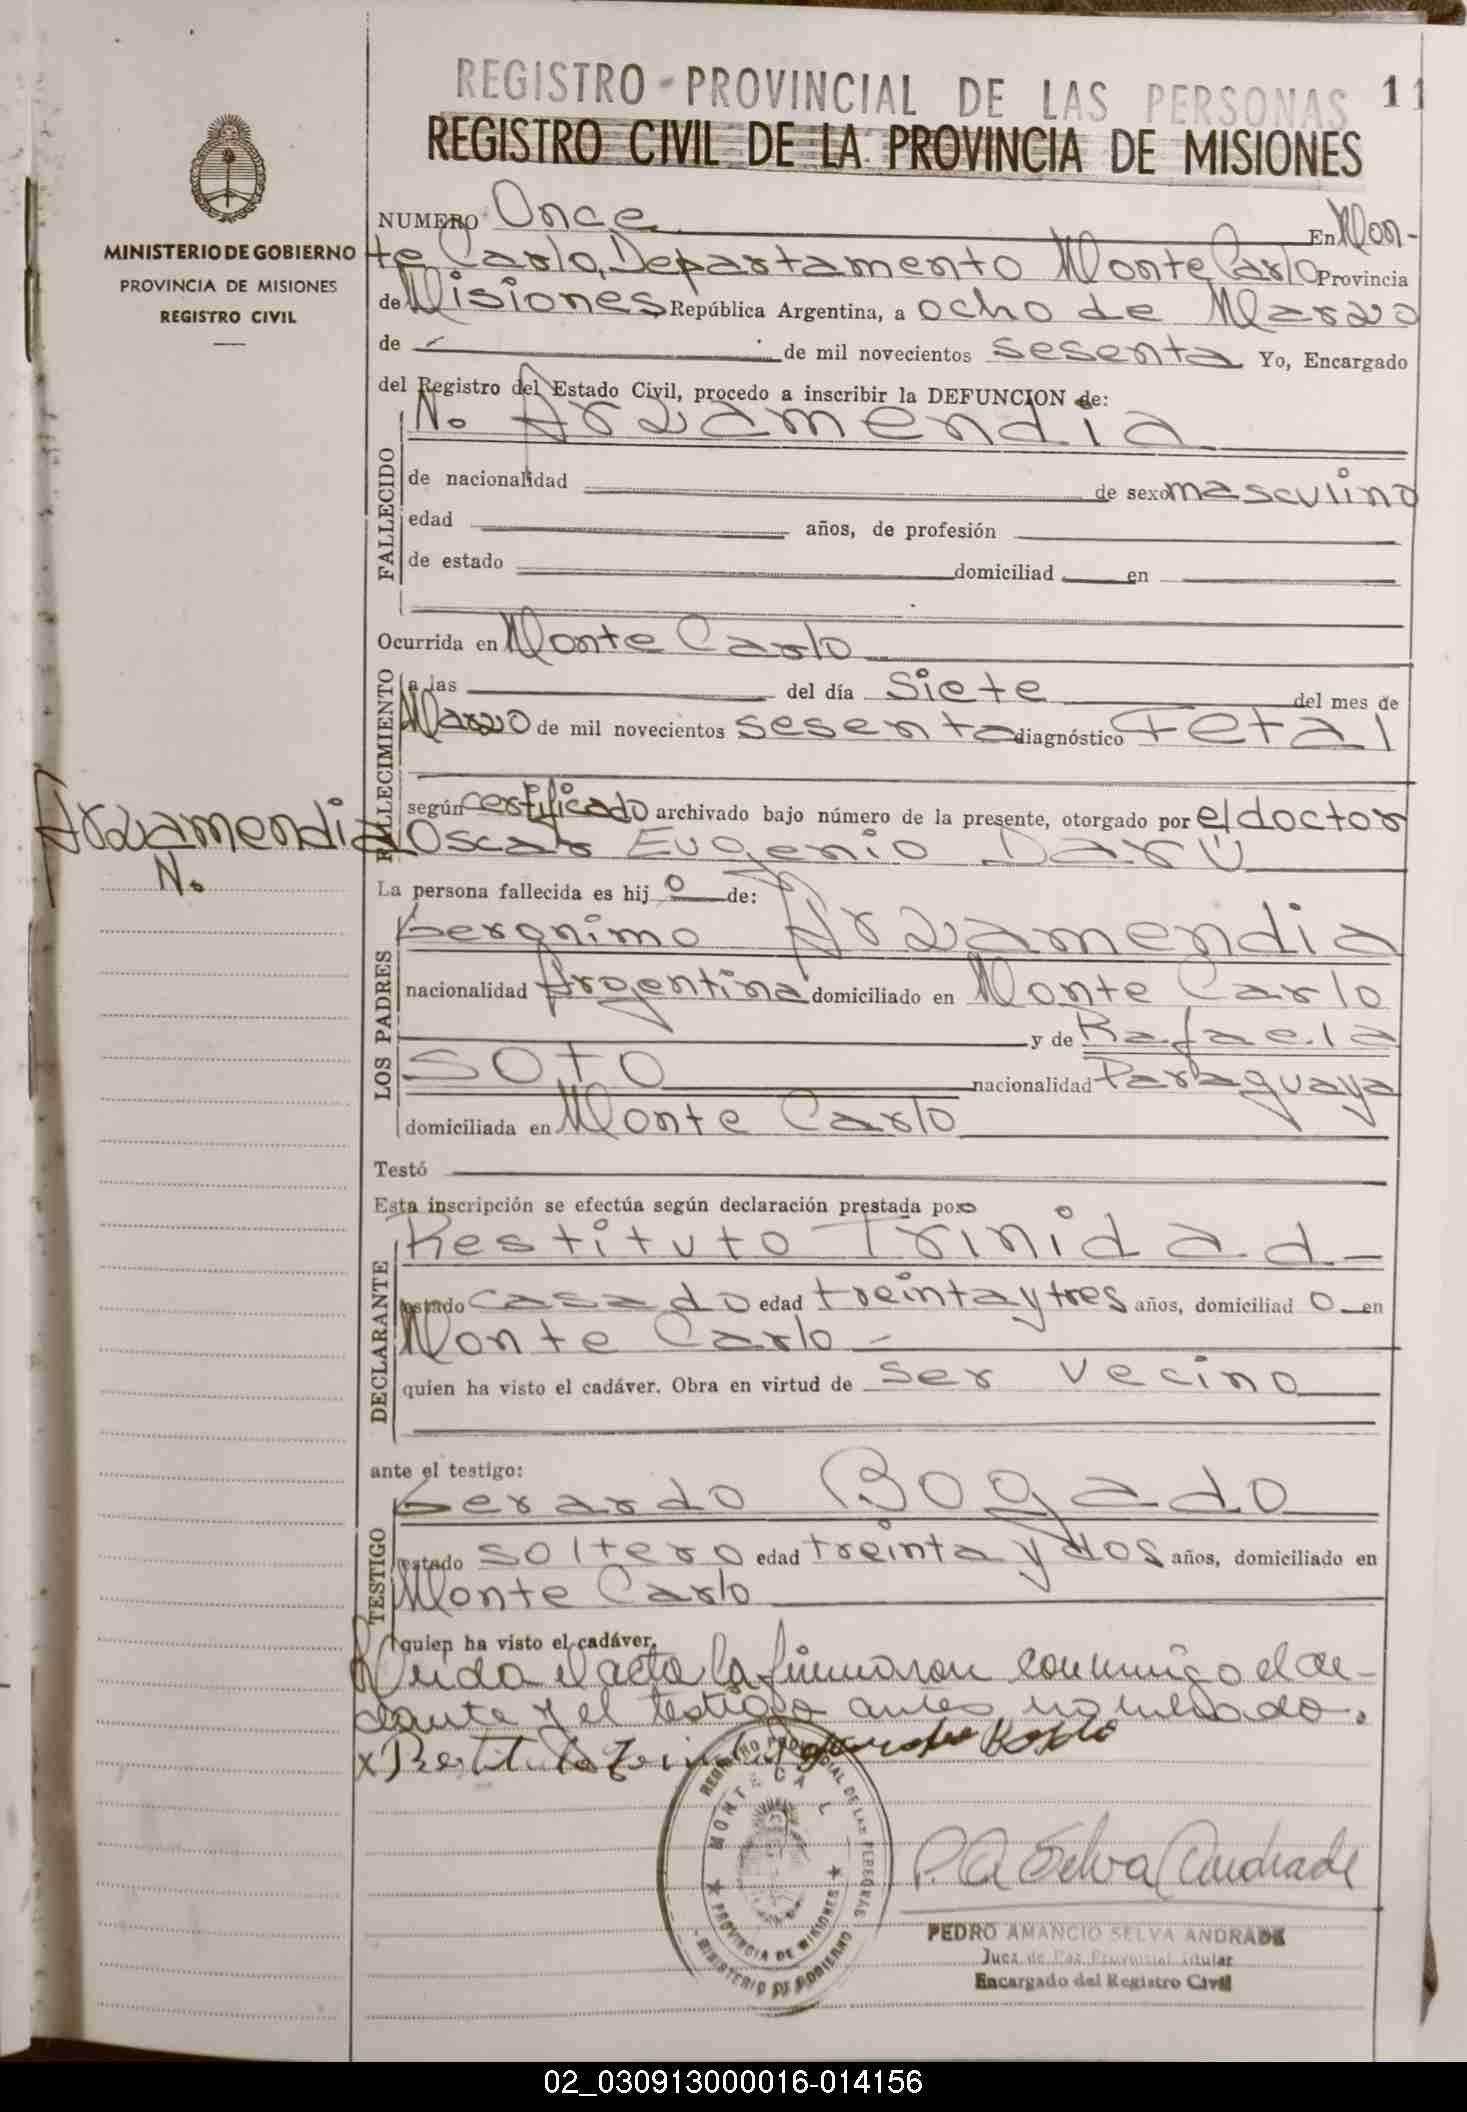 REGISTRO - PROVINCIAL DE LAS PERSONAS 11
REGISTRO CIVIL DE LA PROVINCIA DE MISIONES
MINISTERIO DE GOBIERNO
PROVINCIA DE MISIONES
REGISTRO CIVIL
NUMERO Once En Mon-
te Carlo, Departamento Monte Carlo Provincia
de Misiones República Argentina, a ocho de Marzo
de de mil novecientos sesenta Yo, Encargado
del Registro del Estado Civil, procedo a inscribir la DEFUNCION de:
N. Arzamendia
FALLECIDO
de nacionalidad de sexo masculino
edad años, de profesión
de estado domiciliad en
Ocurrida en Monte Carlo
FALLECIMIENTO
a las del día siete del mes de
Marzo de mil novecientos sesenta diagnóstico Fetal
según certificado archivado bajo número de la presente, otorgado por el doctor
Oscar Eugenio Darú
Arzamendia
N.
La persona fallecida es hij o de:
LOS PADRES
Geronimo Arzamendia
nacionalidad Argentina domiciliado en Monte Carlo
y de Rafaela
Soto nacionalidad Paraguaya
domiciliada en Monte Carlo
Testó
Esta inscripción se efectúa según declaración prestada por
DECLARANTE
Restituto Trinidad -
estado casado edad treinta y tres años, domiciliad o en
Monte Carlo -
quien ha visto el cadáver. Obra en virtud de ser vecino
ante el testigo:
TESTIGO
Gerardo Bogado
estado soltero edad treinta y dos años, domiciliado en
Monte Carlo
quien ha visto el cadáver.
Leida el acta la firmaron conmigo el de-
clarante y el testigo antes nombrado.
x Restituto Trinidad Gerardo Bogado
REGISTRO PROVINCIAL DE LAS PERSONAS
MONTECARLO
PROVINCIA DE MISIONES
MINISTERIO DE GOBIERNO
P. A. Selva Andrade
PEDRO AMANCIO SELVA ANDRADE
Juez de Paz Provincial Titular
Encargado del Registro Civil
02_030913000016-014156